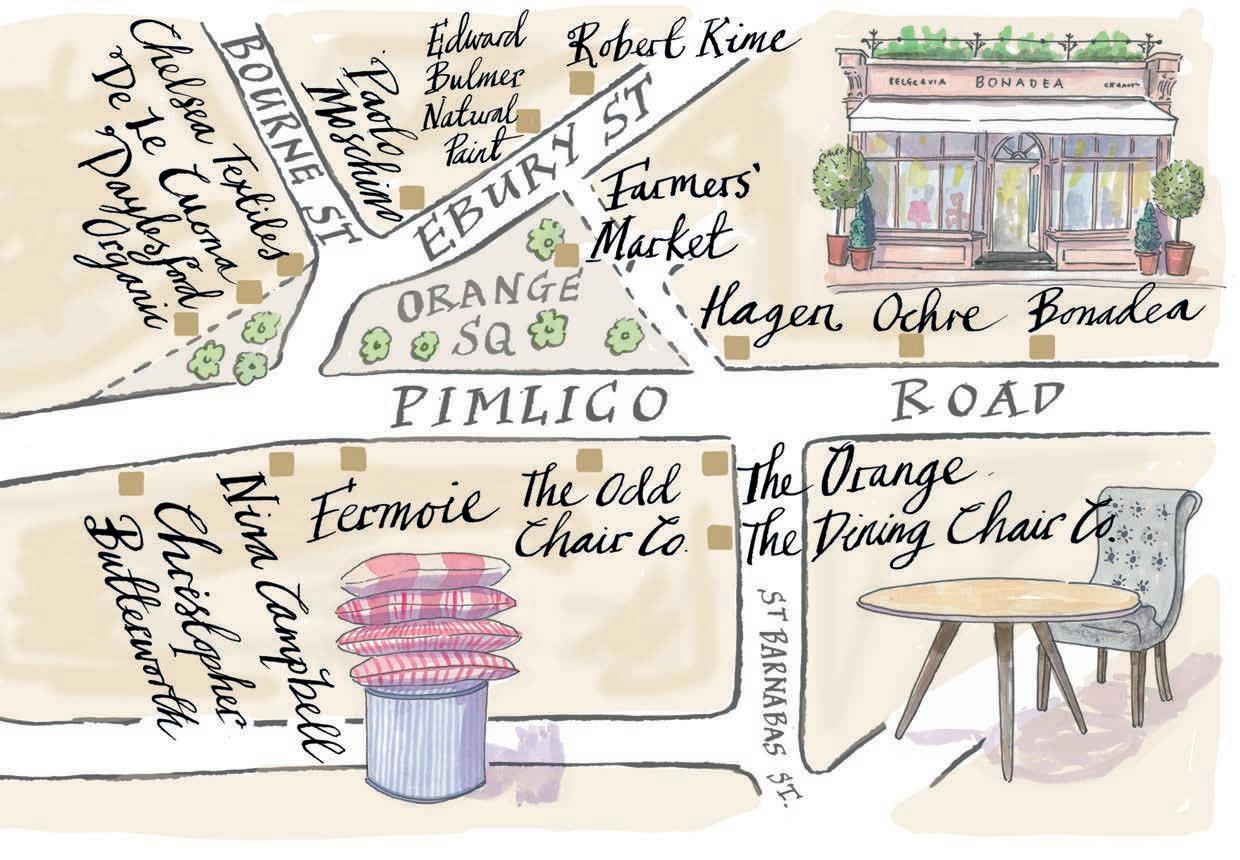 Chelsea Textiles
De Le Cuona
Daylesford
Organic
BOURNE ST
Paolo
Moschino
Edward
Bulmer
Natural
Paint
Robert Kime
EBURY ST
Farmers'
Market
ORANGE
SQ
BELGRAVIA BONADEA
Hagen Ochre Bonadea
PIMLICO ROAD
Christopher
Butterworth
Nina Campbell
Fermoie
The Odd
Chair Co.
The Orange
The Dining Chair Co.
ST BARNABAS ST.